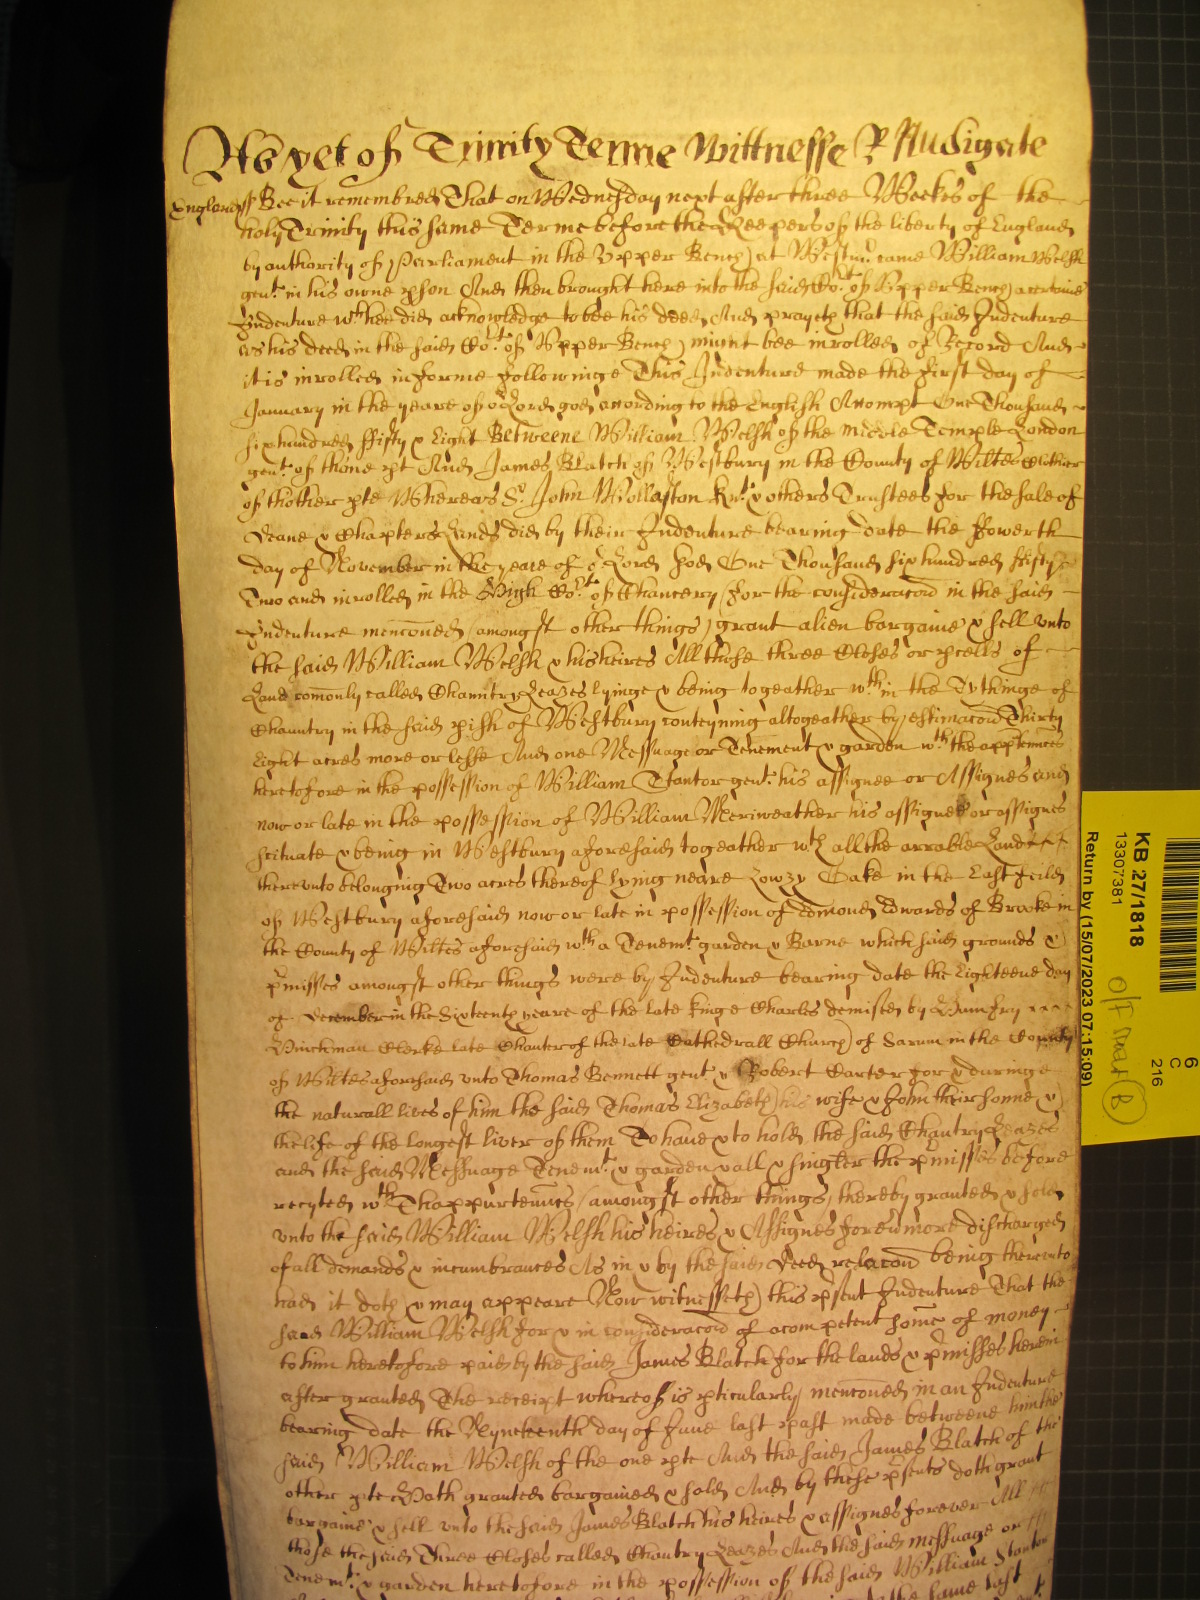 As yet of Trinity Terme Wittnesse P Rudigate
England ss Bee it remembred That on Wednesday next after three Weekes of the
holy Trinity this same Terme before the Keepers of the liberty of England
by authority of Parliament in the Upper Bench at Westmr. came William Welsh
gent. in his owne pson And then brought here into the said Cort. of Upper Bench a certaine
Indenture wch hee did acknowledge to bee his deed And prayeth that the said Indenture
as his deed in the said Cort. of Upper Bench might bee inrolled of Record And
it is inrolled in forme followinge This Indenture made the first day of
January in the yeare of or Lord god according to the English Accompt One Thousand
six hundred ffifty & Eight Betweene William Welsh of the Middle Temple London
gent. of thone pt And James Blatch of Westbury in the County of Wiltes Clothier
of thother pte Whereas Sr. John Wollaston Knt. & others Trustees for the sale of
Deane & Chapters Lands did by their Indenture bearing date the ffowerth
day of November in the yeare of or Lord God One Thousand six hundred fifty
Two and inrolled in the High Cort. of Chancery (for the consideracon in the said
Indenture menconed) (amongst other things) grant alien bargaine & sell unto
the said William Welsh & his heires All those three Closes or pcells of
Land comonly called Chauntry Leazes lyinge & being togeather wthin the Tythinge of
Chauntry in the said pish of Westbury conteyning altogeather by estimacon Thirty
Eight acres more or lesse And one Messuage or Tenement & garden wth the apptennces
heretofore in the possession of William Stantor gent. his assignee or Assignes and
now or late in the possession of William Meriweather his assignee or assignes
scituate & being in Westbury aforesaid togeather wth all the arrable Land
thereunto belonging Two acres thereof lying neare Lowzy Oake in the East feild
of Westbury aforesaid now or late in possession of Edmond Edwards of Brooke in
the County of Wiltes aforesaid wth a Tenemt. garden & Barne which said grounds &
pmisses amongst other things were by Indenture bearing date the Eighteene day
of December in the Sixteenth yeare of the late Kinge Charles demised by Humfry
Hinchman Clerke late Chanter of the late Cathedrall Church of Sarum in the County
of Wiltes aforesaid unto Thomas Bennett gent & Robert Carter for & duringe
the naturall lives of him the said Thomas Elizabeth his wife & John their sonne &
the life of the longest liver of them To have & to hold the said Chantry Leazes
and the said Messuage Tenemt. & garden & all & singler the pmisses before
recyted wth Thappurtennces (amongst other things) thereby granted & sold
unto the said William Welsh his heires & Assignes forevermore discharged
of all demands & incumbrances As in & by the said Deed relacon being thereunto
had it doth & may appeare Now witnesseth this psent Indenture That the
said William Welsh for & in consideracon of a competent some of money
to him heretofore paid by the said James Blatch for the lands & pmisses herein
after granted The receipt whereof is pticularly menconed in an Indenture
bearing date the Nyneteenth day of June last past made betweene him the
said William Welsh of the one pte And the said James Blatch of the
other pte Hath granted bargained & sold And by these psents doth grant
bargaine & sell unto the said James Blatch his heires & assignes forever All
those the said Three Closes called Chantry Leazes And the said messuage or
Tenemt. & garden heretofore in the possession of the said William Stantor
the same last
KB 27/1818
13307381
Return by (15/07/2023 07:15:09)
6
C
216